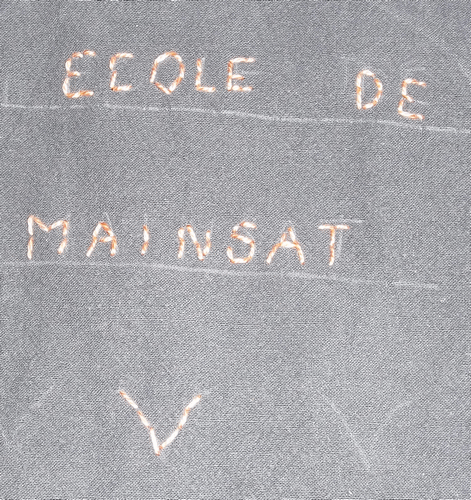 ECOLE DE
MAINSAT
V